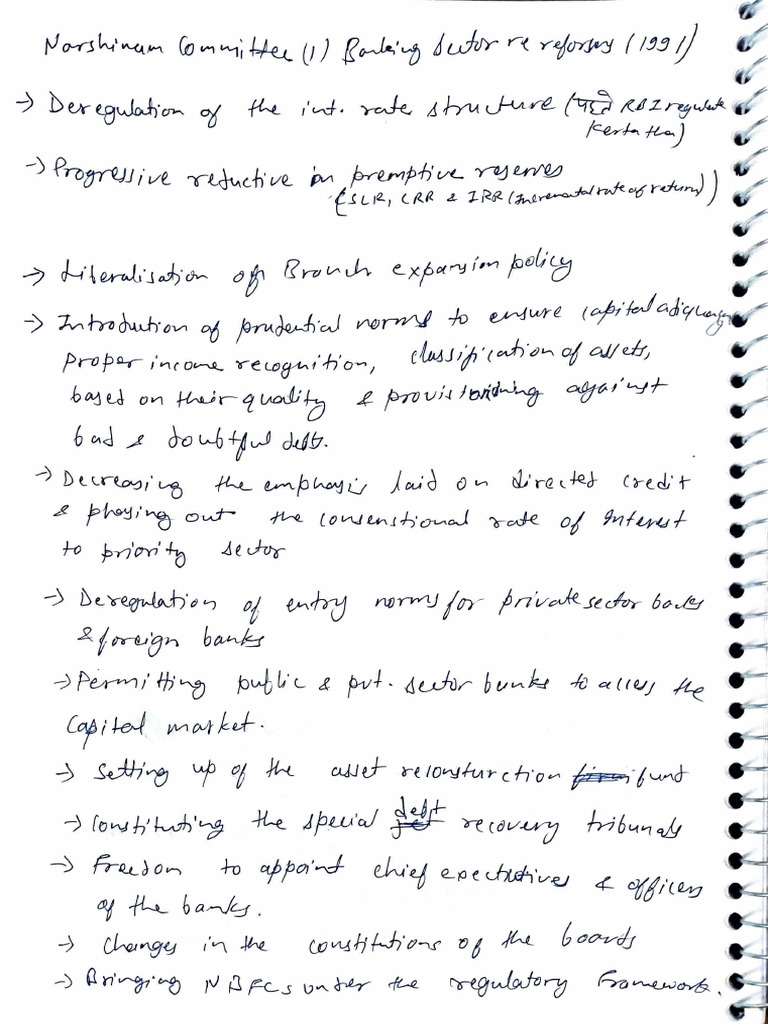 Narshimam Committee (1) Banking Sector re reforms (1991)
→ Deregulation of the int. rate structure (पहले RBI regulate
kerta tha)
→ Progressive reductive in premptive reserves
(SLR, CRR & IRR (Incremental rate of return))
→ Liberalisation of Branch expansion policy
→ Introdution of prudential norms to ensure capital
proper income recognition, classification of assets,
based on their quality & provisioning against
bad & doubtful debt.
→ Decreasing the emphasis laid on directed credit
& phasing out the consenstional rate of Interest
to priority sector
→ Deregulation of entry norms for private sector banks
& foreign banks
→ Permitting public & pvt. sector banks to access the
Capital market.
→ Setting up of the asset reconsturction fund
→ Constituting the special debt recovery tribunals
→ Freedom to appoint chief executives & officers
of the banks.
→ Changes in the constitutions of the boards
→ Bringing NBFCs under the regulatory framework.